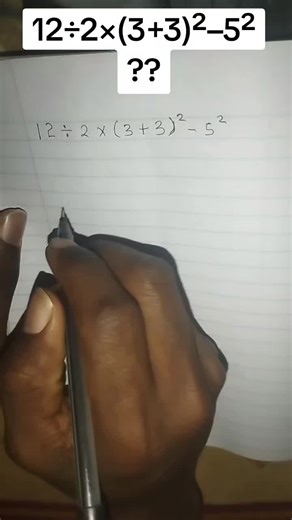 12÷2×(3+3)²–5²
??
12 ÷ 2 × (3 + 3)² - 5²